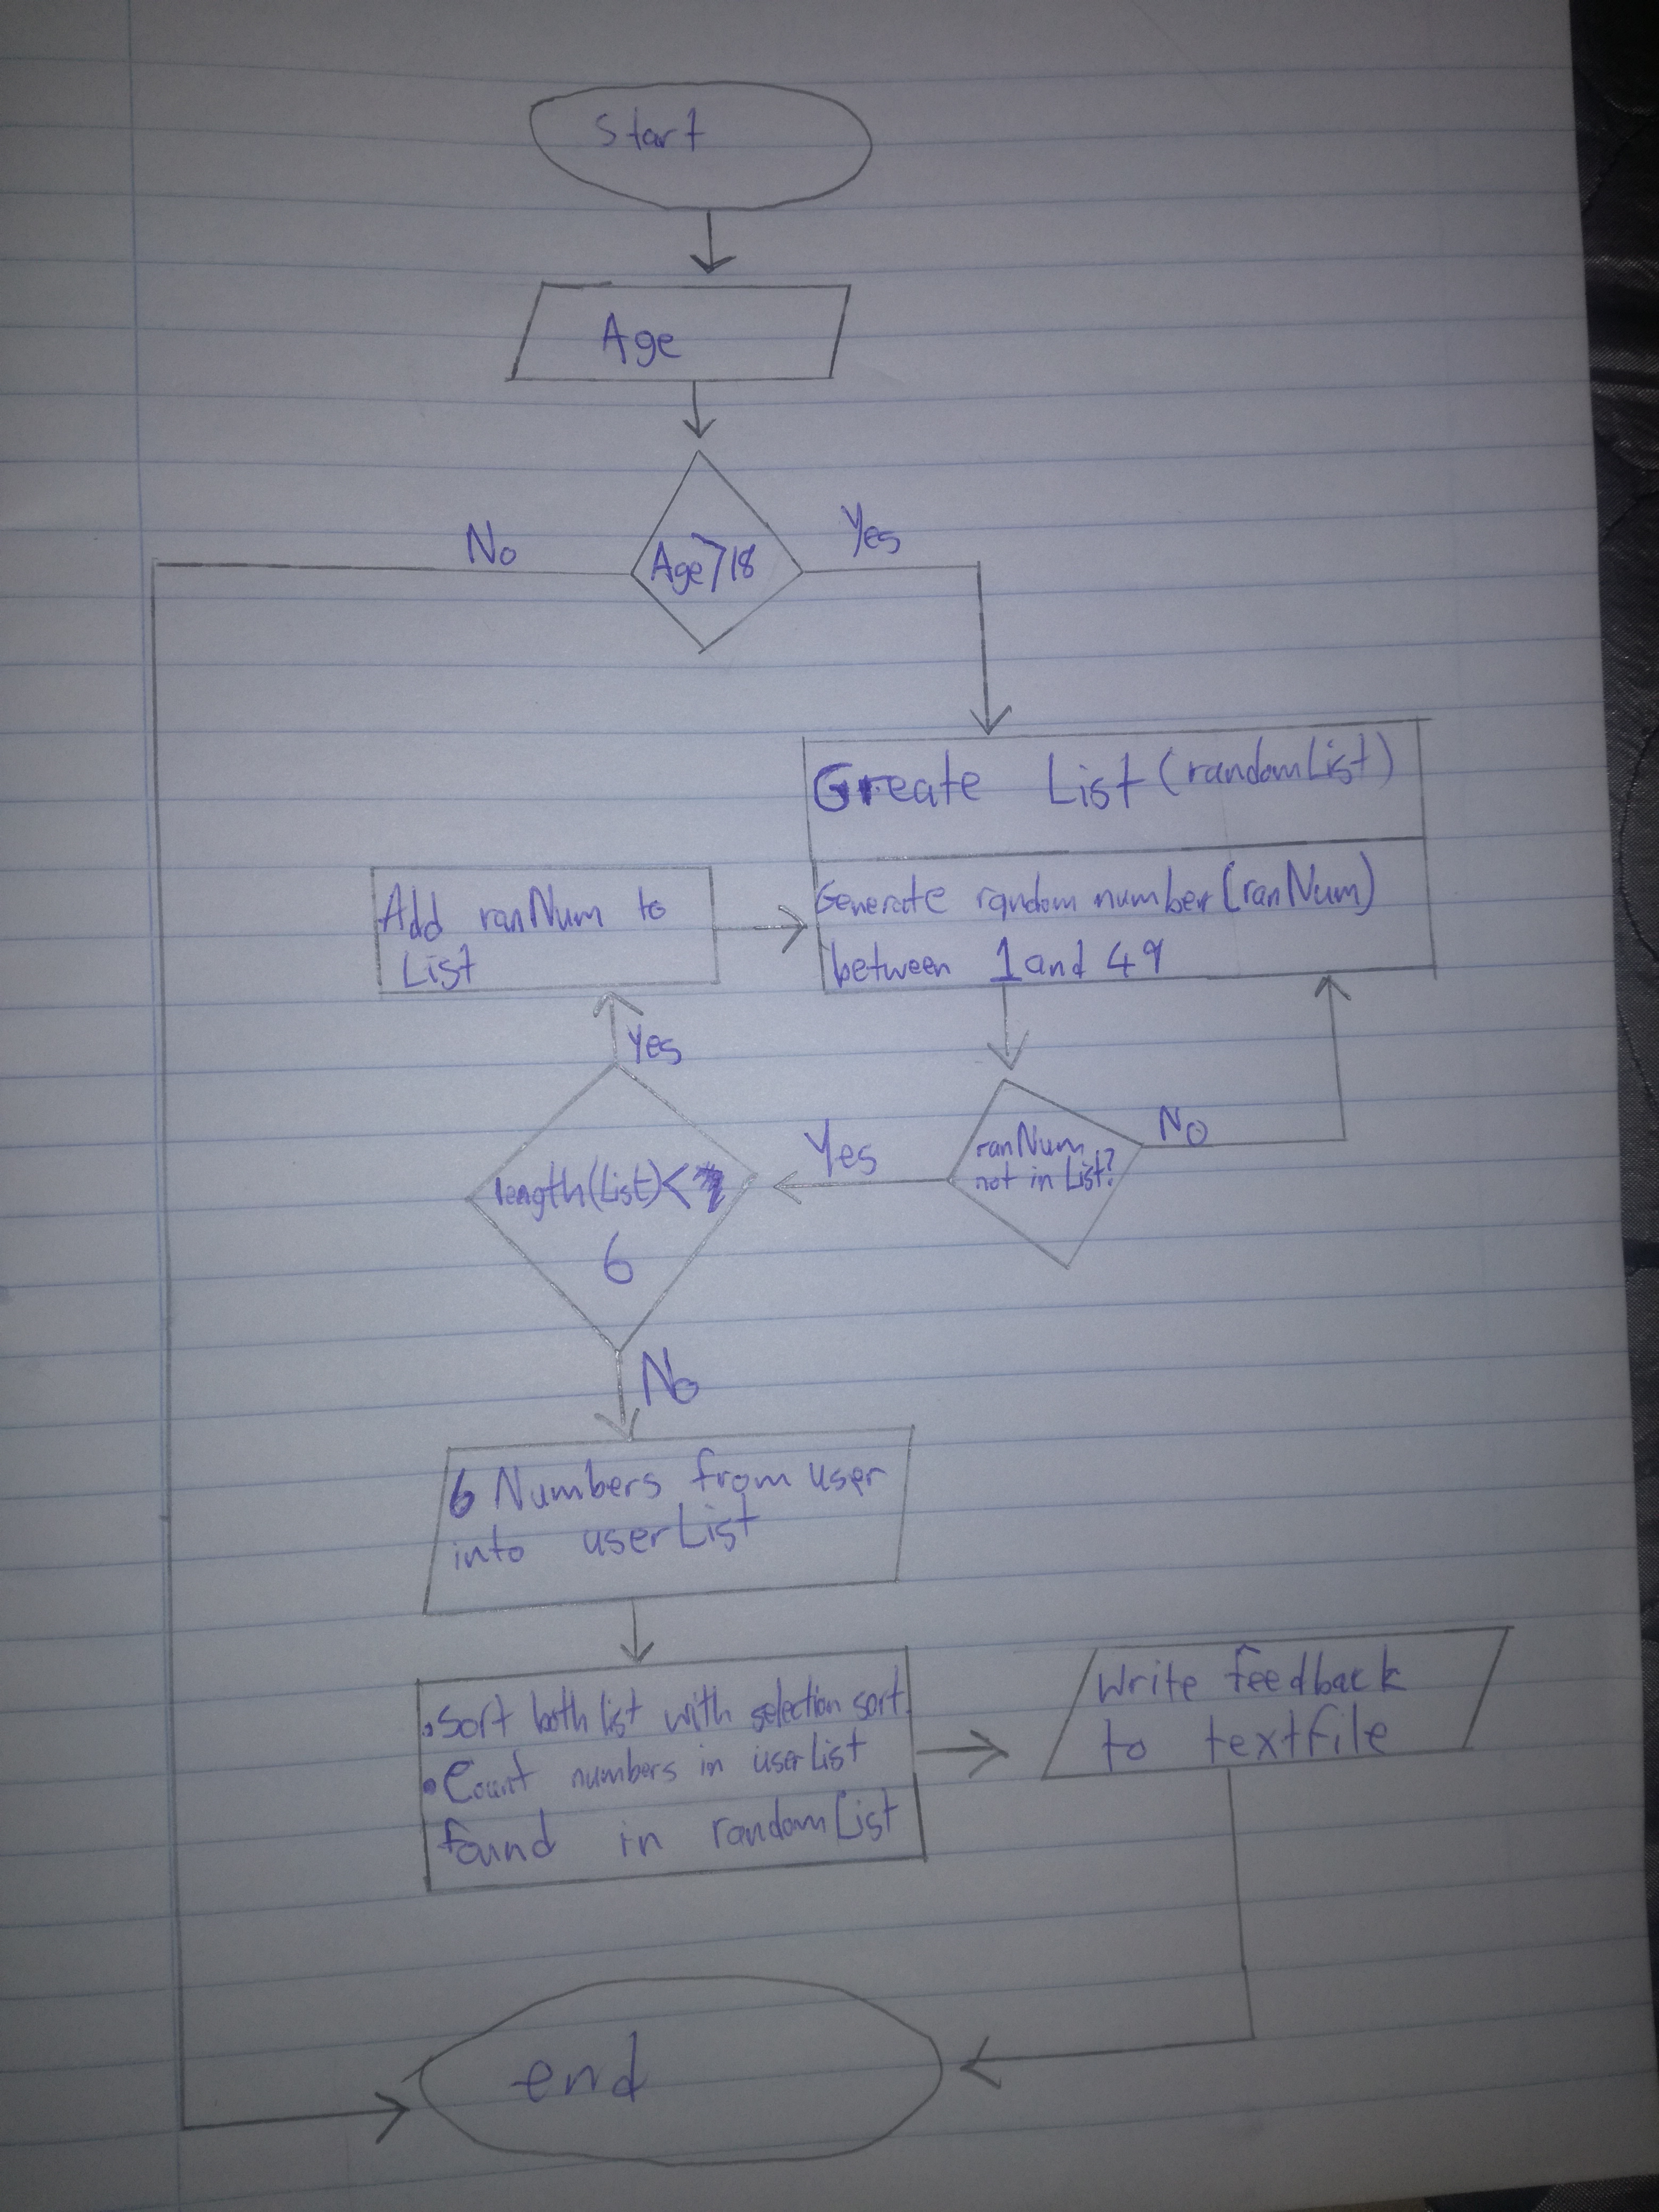 Start
Age
Age>18
No
Yes
Greate List (randomList)
Generate random number (ranNum)
between 1 and 49
Add ranNum to
List
Yes
ranNum
not in List?
No
Yes
length(List)<
6
No
6 Numbers from user
into userList
• Sort both list with selection sort
• Count numbers in userList
found in randomList
Write feedback
to textfile
end